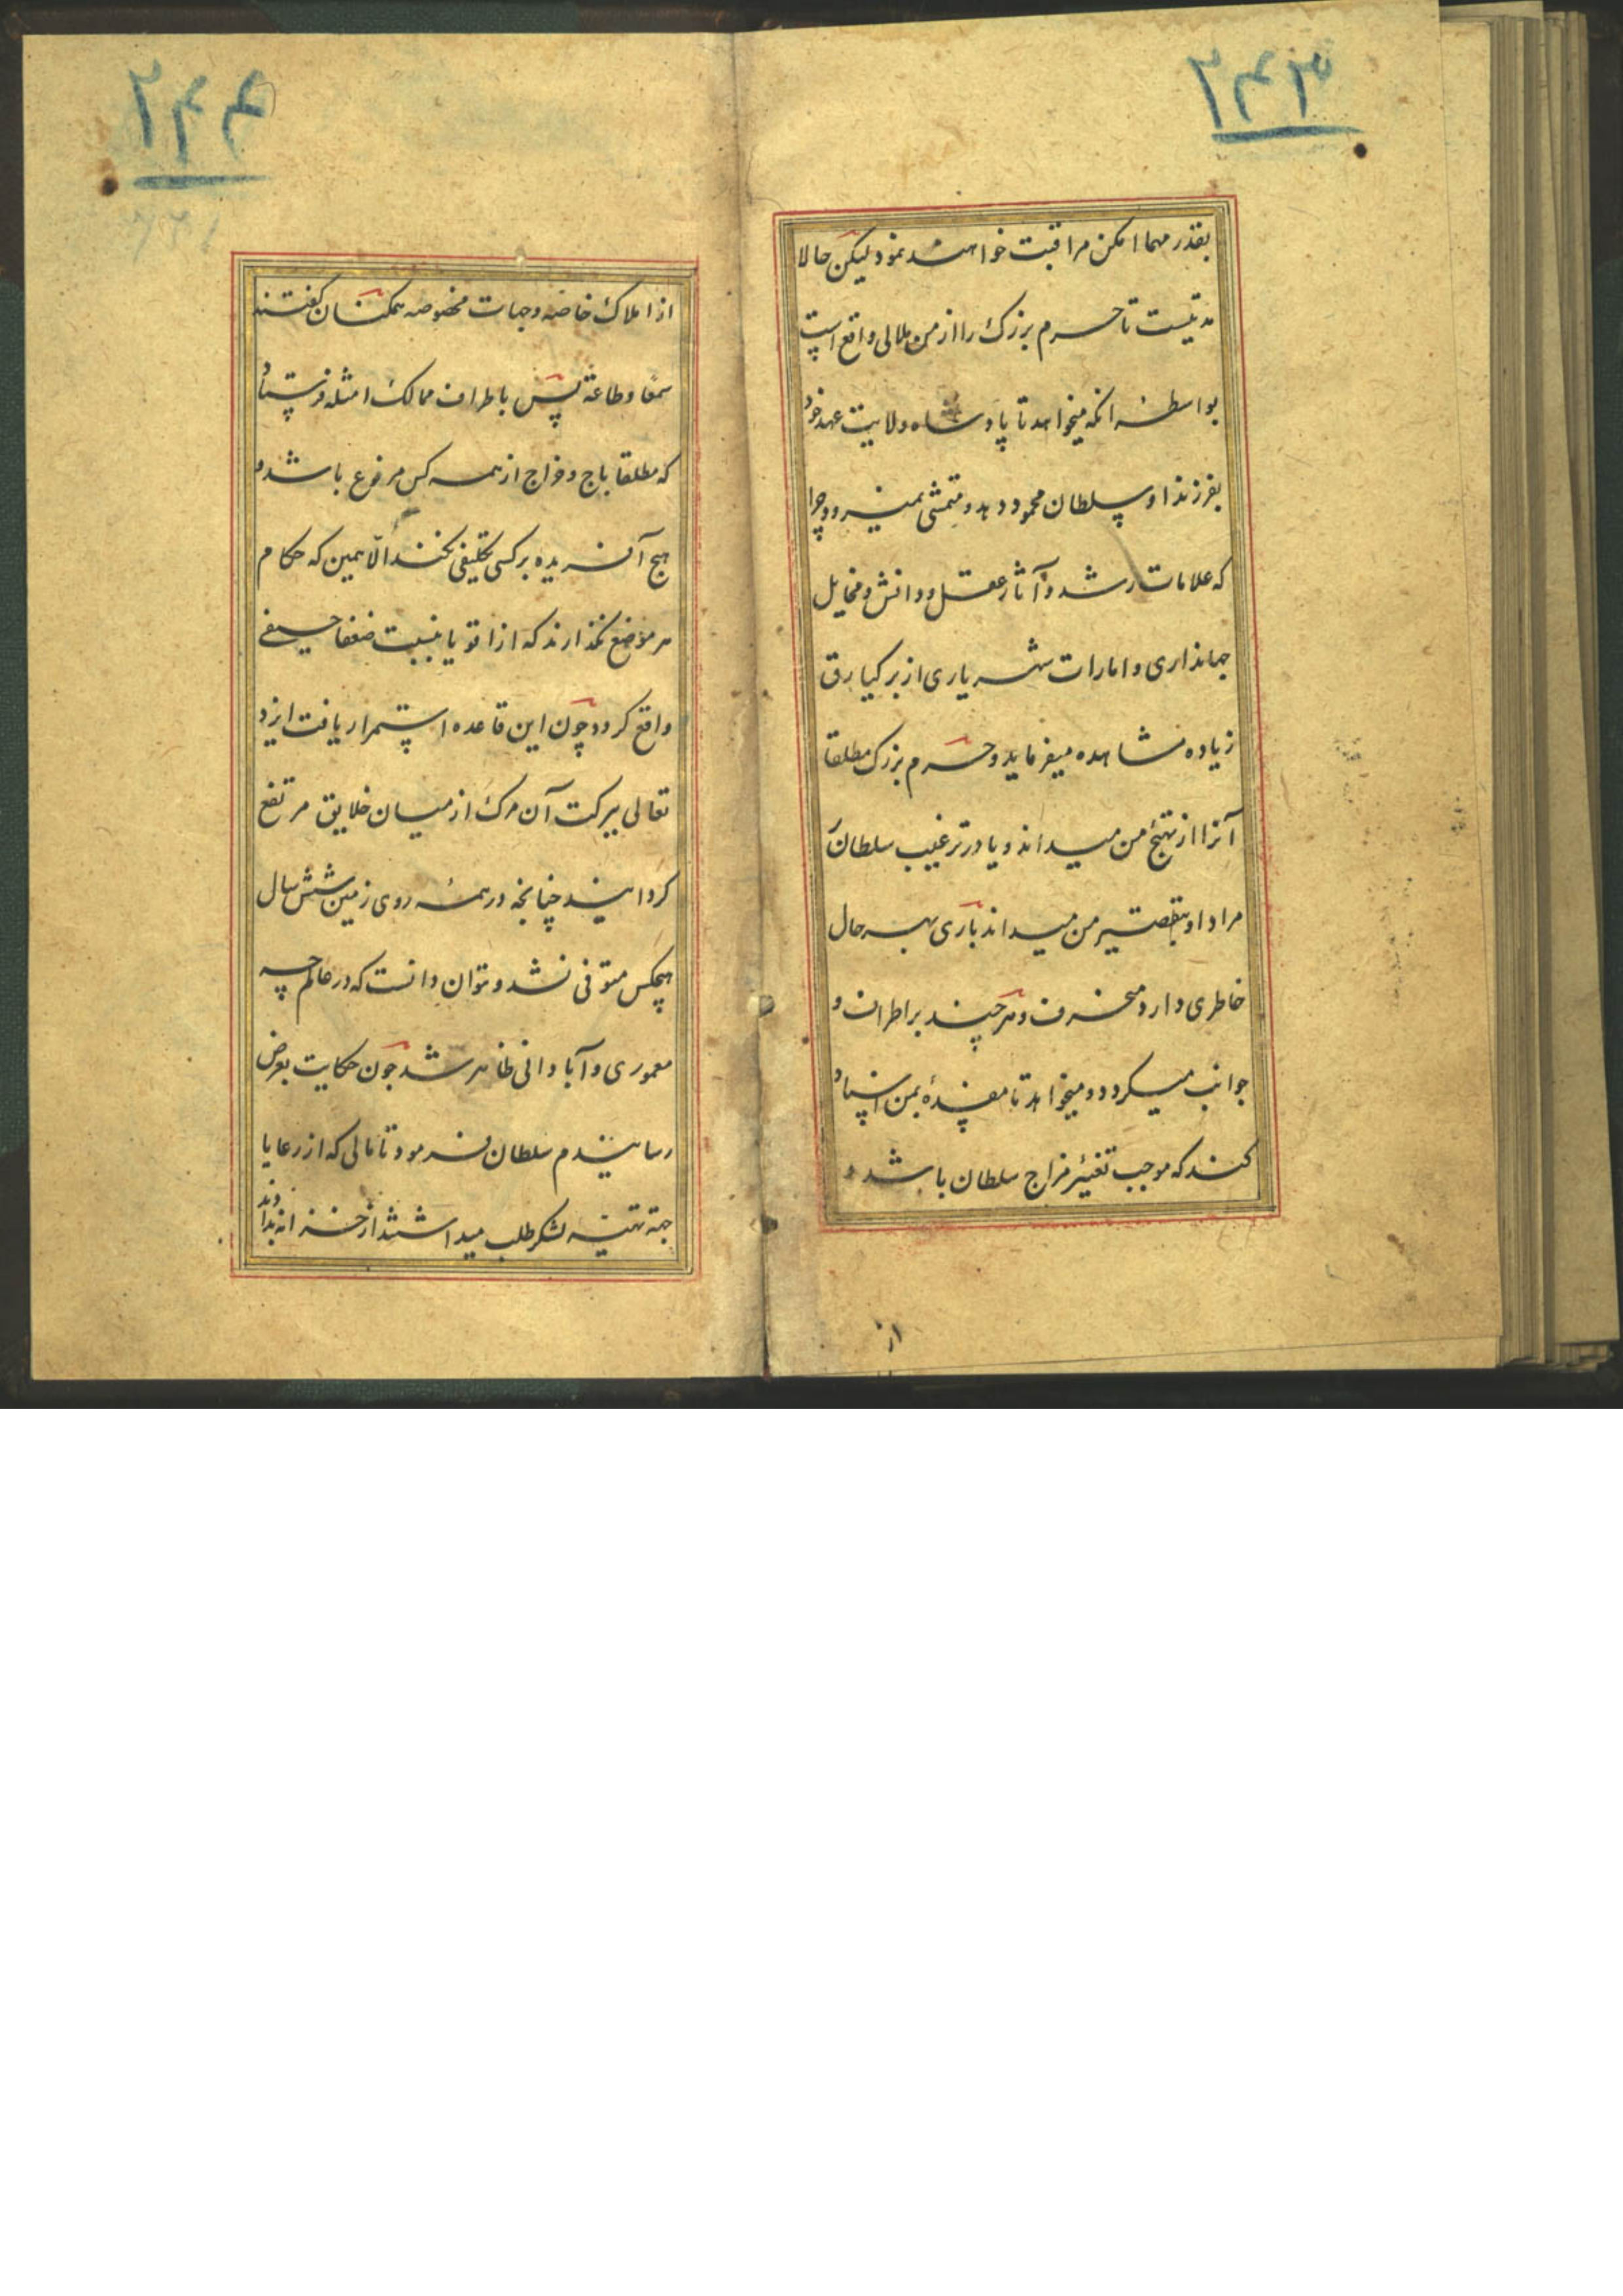 ۲۴۳
بقدر مهما امکن مراقبت خواهند نمود لیکن حالا
مدتیست تا حرم بزرک را از من ملالی واقع است
بواسطهٔ انکه میخواهد تا پادشاه ولایت عهد خود
بفرزند او سلطان محمود دهد و متمشی نمیرود چرا
که علامات رشد و آثار عقل و دانش و مخایل
جهانداری و امارات شهریاری از برکیارق
زیاده مشاهده میفرماید و حرم بزرک مطلقا
آنرا از تهیج من میداند و یا در ترغیب سلطان
مراد او بتقصیر من میداند باری بهر حال
خاطری دارد منحرف و هر چند بر اطراف و
جوانب میکردد و میخواهد تا مفسدهٔ بمن اسناد
کند که موجب تغیّر مزاج سلطان باشد و
از
۲۴۴
از املاک خاصه و جهات مخصوصه همکنان کفتند
سمعًا و طاعة پس باطراف ممالک امثله فرستاد
که مطلقا باج و خراج از همه کس مرفوع باشد و
هیچ آفریده بر کسی تکلیفی نکند الّا همین که حکام
هر موضع نکذارند که از اقویا بنسبت ضعفا حیفی
واقع کردد چون این قاعده استمرار یافت ایزد
تعالی ببرکت آن مرک از میان خلایق مرتفع
کردانید چنانچه در همهٔ روی زمین شش سال
هیچکس متوفی نشد و نتوان دانست که در عالم چه
معموری و آبادانی ظاهر شد چون حکایت بعرض
رسانیدم سلطان فرمود تا مالی که از رعایا
جهة تهیهٔ لشکر طلب میداشتند از خزانه بدادند